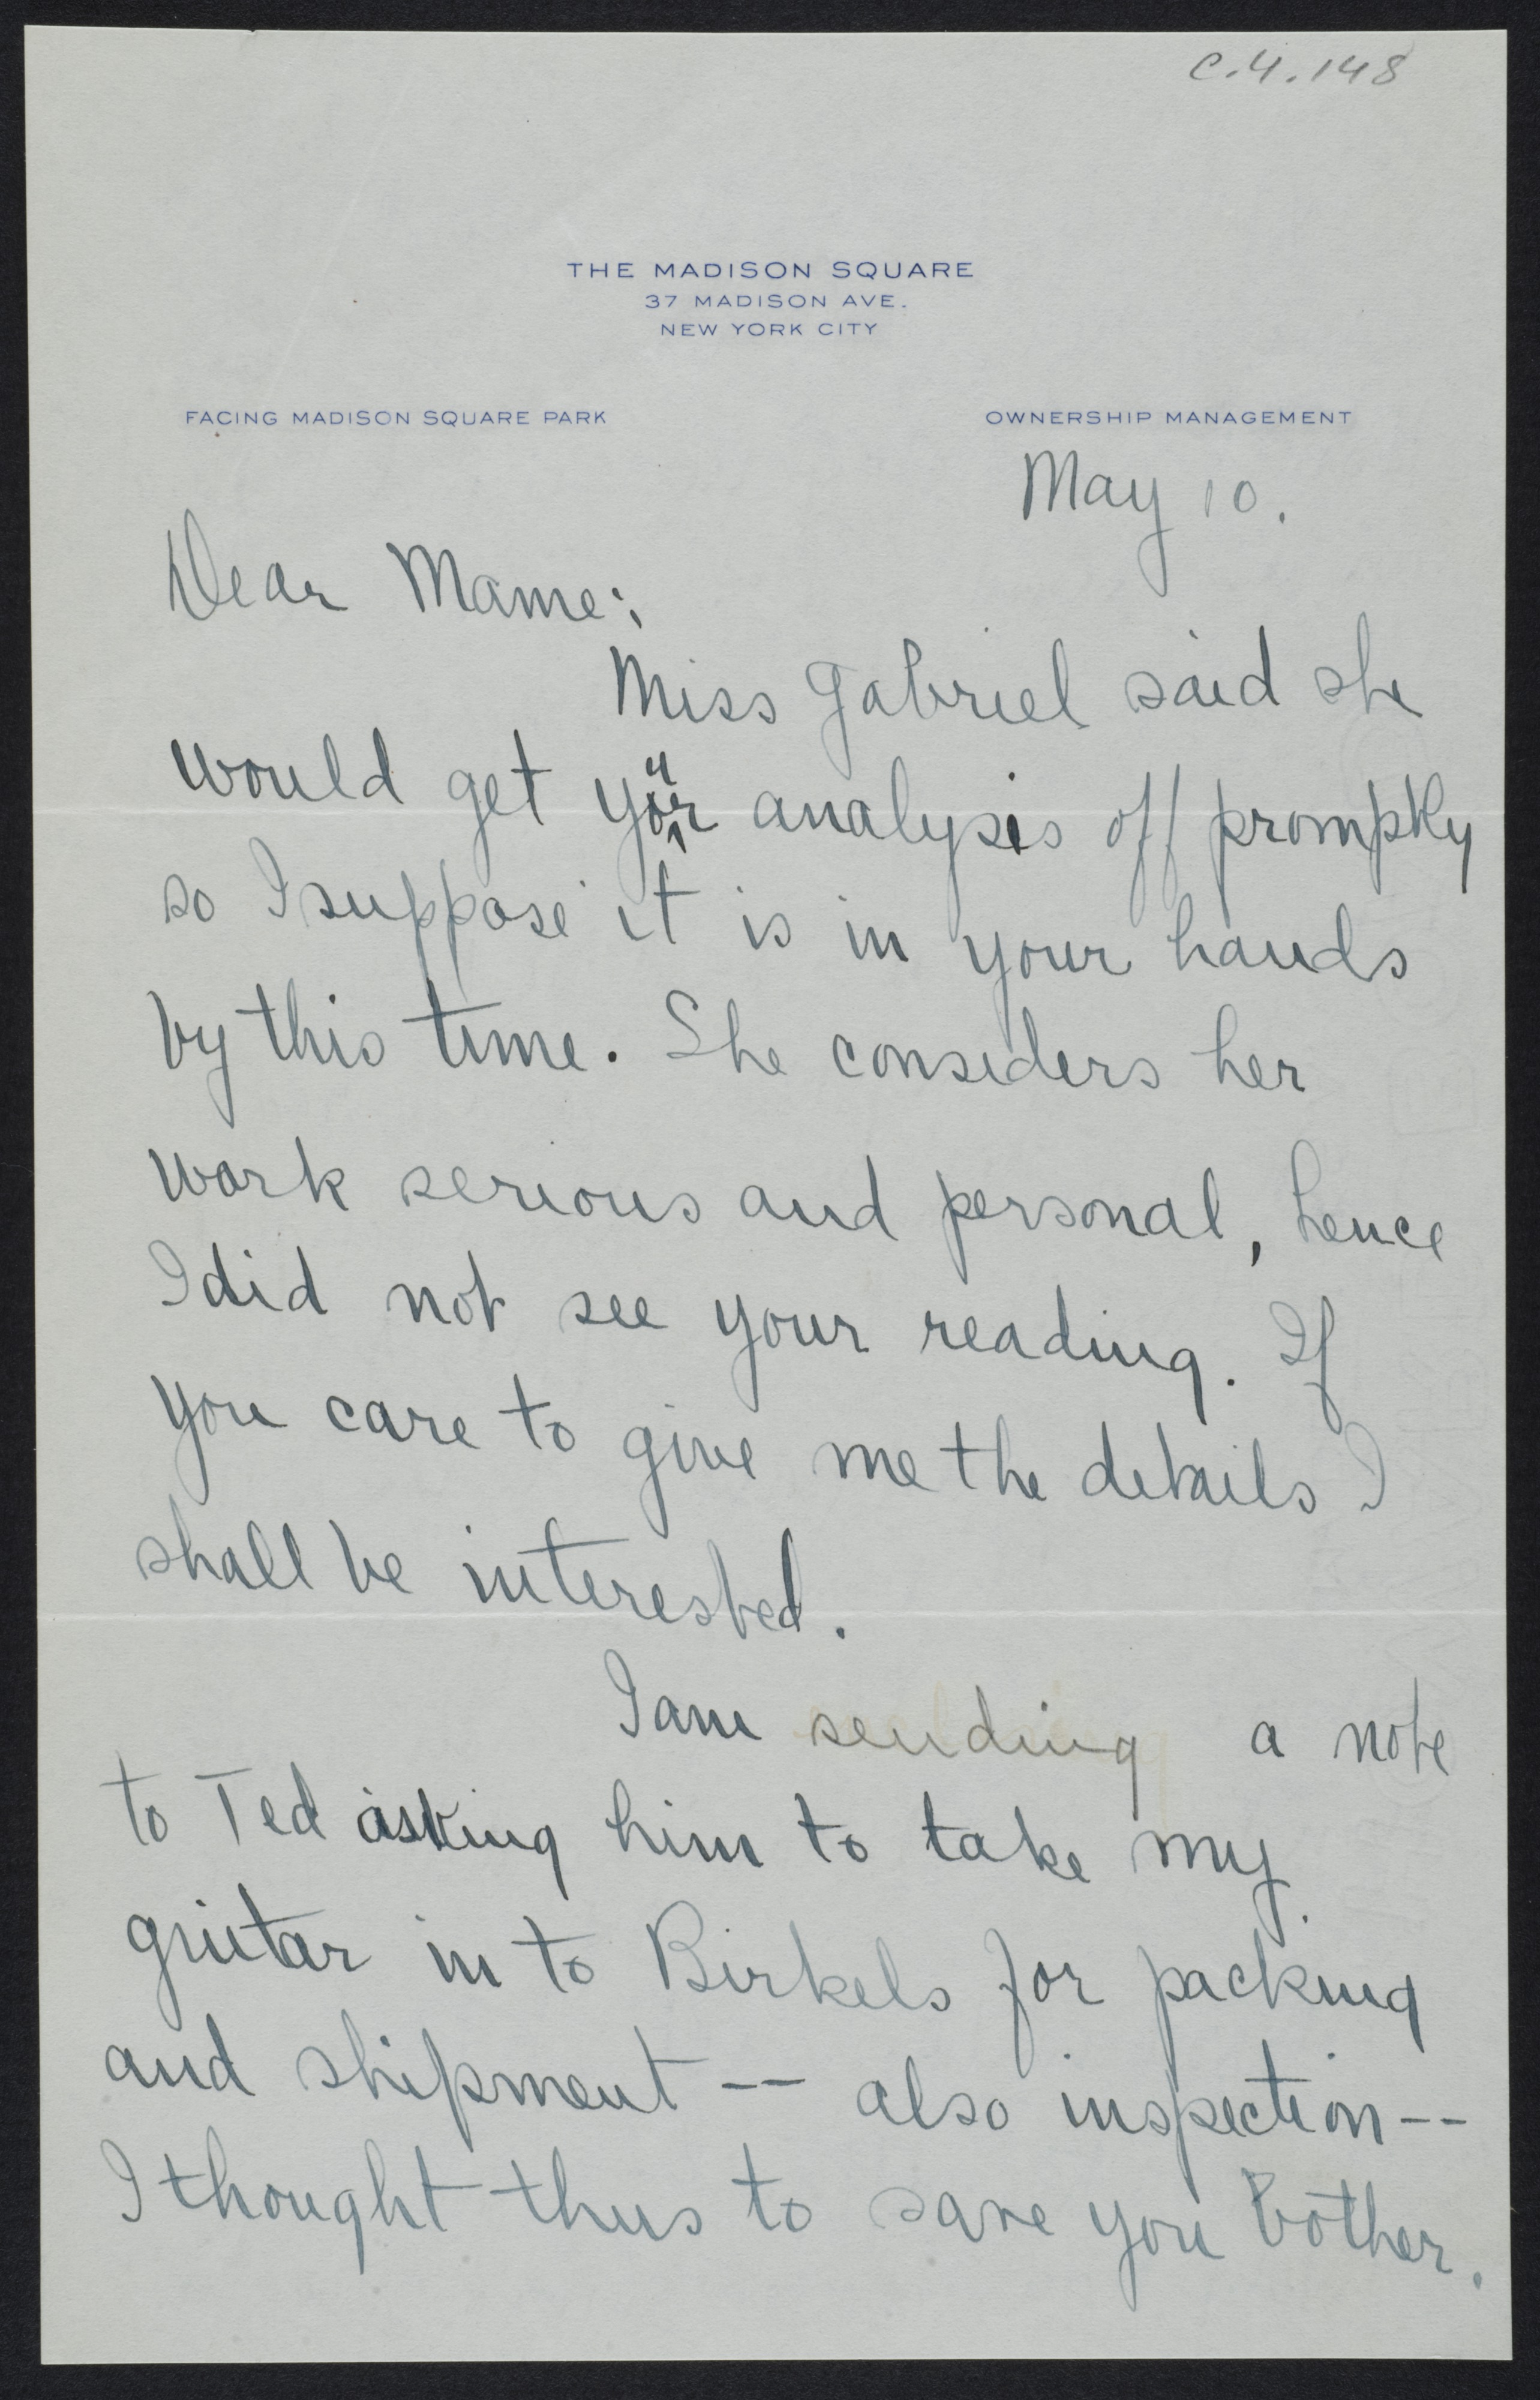 C.4.148
THE MADISON SQUARE
37 MADISON AVE.
NEW YORK CITY
FACING MADISON SQUARE PARK
OWNERSHIP MANAGEMENT
May 10.
Dear Mame:
Miss Gabriel said she
would get your analysis off promptly
so I suppose it is in your hands
by this time. She considers her
work serious and personal, hence
I did not see your reading. If
you care to give me the details I
shall be interested.
I am sending a note
to Ted asking him to take my
guitar in to Birkels for packing
and shipment -- also inspection --
I thought thus to save you bother.